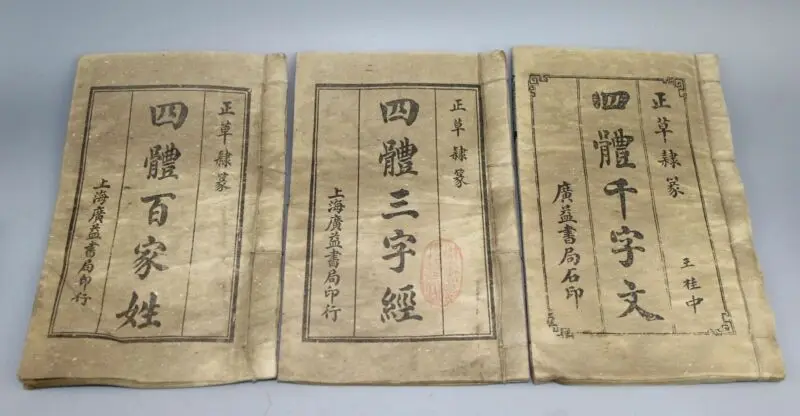 正草隸篆
四體百家姓
上海廣益書局印行
正草隸篆
四體三字經
上海廣益書局印行
正草隸篆
四體千字文
廣益書局石印
王桂中